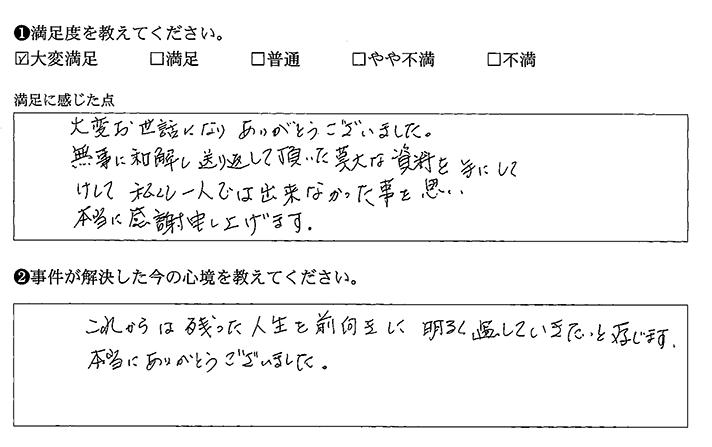 ❶満足度を教えてください。
☑大変満足 □満足 □普通 □やや不満 □不満
満足に感じた点
大変お世話になりありがとうございました。
無事に和解し送り返して頂いた莫大な資料を手にして
けして私し一人では出来なかった事と思い
本当に感謝申し上げます。
❷事件が解決した今の心境を教えてください。
これからは残った人生を前向きに明るく過していきたいと存じます。
本当にありがとうございました。